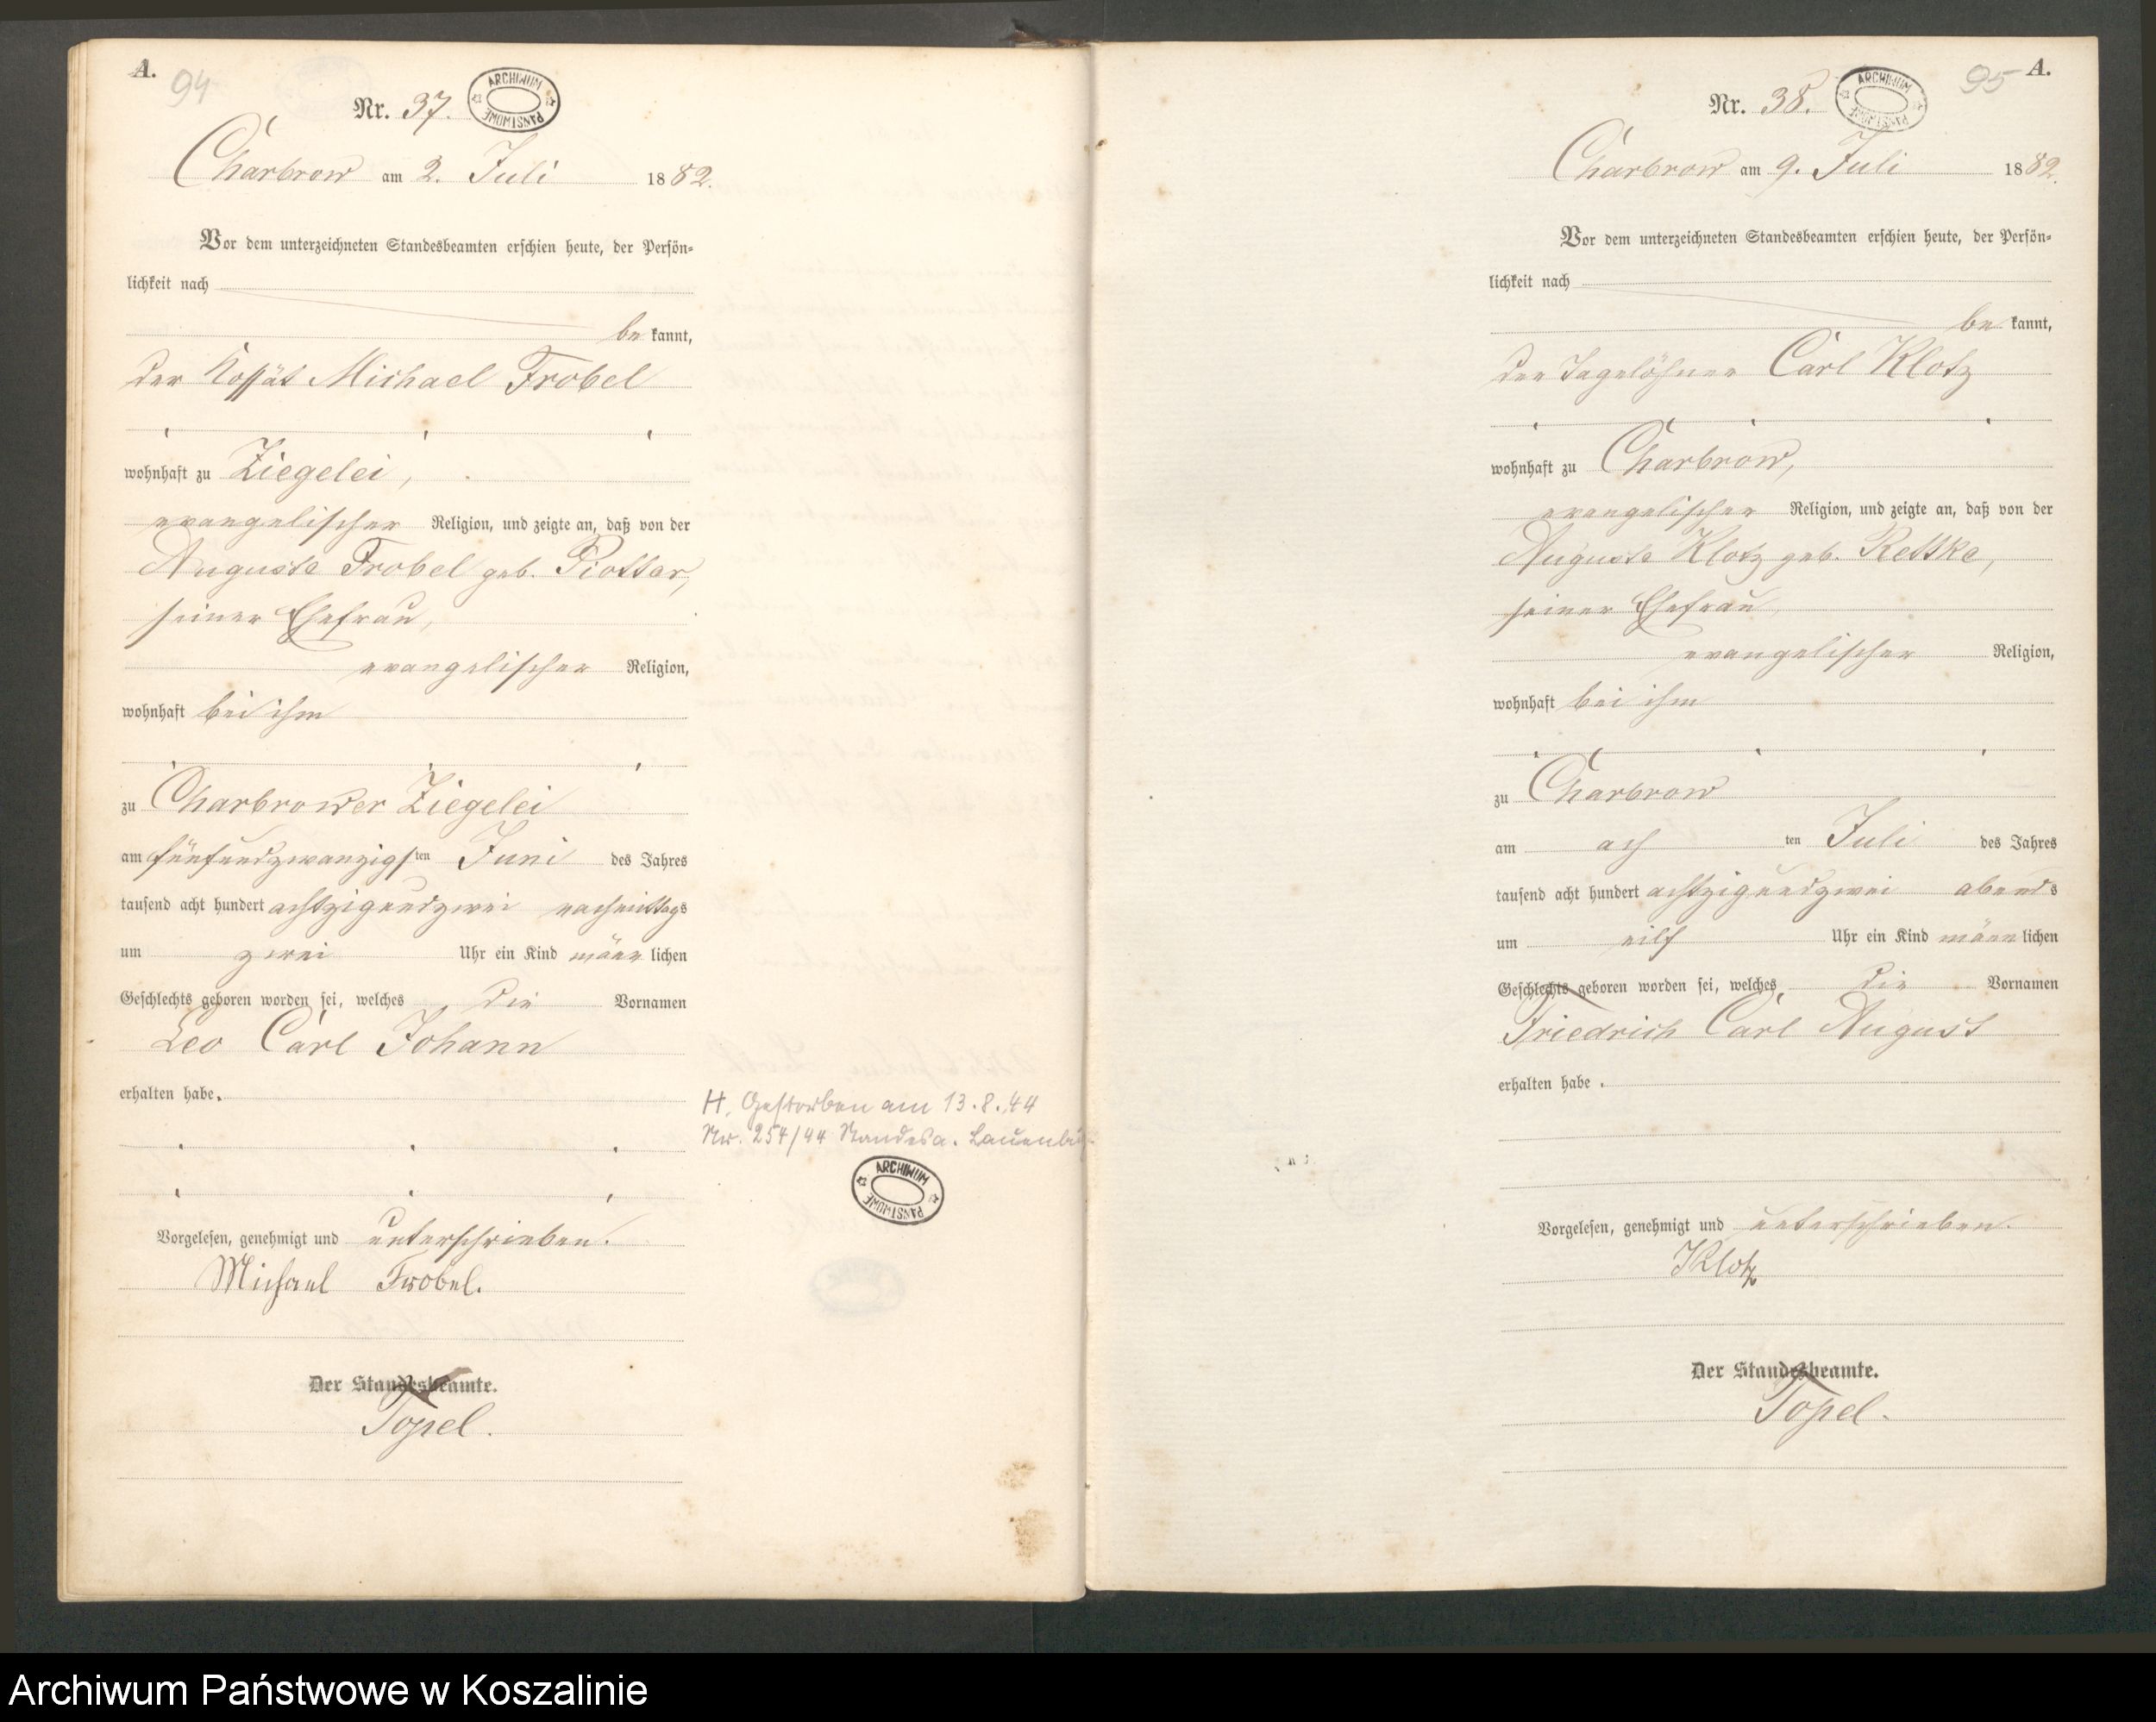 A.
94
Nr. 37.
ARCHIWUM PAŃSTWOWE
Charbrow am 2. Juli 1882.
Vor dem unterzeichneten Standesbeamten erschien heute, der Persön-
lichkeit nach
bekannt,
der Kossät Michael Frobel
wohnhaft zu Ziegelei,
evangelischer Religion, und zeigte an, daß von der
Auguste Frobel geb. Piottar,
seiner Ehefrau,
evangelischer Religion,
wohnhaft bei ihm
zu Charbrower Ziegelei
am fünfundzwanzigsten Juni des Jahres
tausend acht hundert achtzigundzwei nachmittags
um zwei Uhr ein Kind männlichen
Geschlechts geboren worden sei, welches die Vornamen
Leo Carl Johann
erhalten habe.
H. Gestorben am 13.8.44
Nr. 254/44 Standesa.
ARCHIWUM PAŃSTWOWE
Vorgelesen, genehmigt und unterschrieben.
Michael Frobel.
Der Standesbeamte.
Topel.
95
A.
Nr. 38.
ARCHIWUM PAŃSTWOWE
Charbrow am 9. Juli 1882.
Vor dem unterzeichneten Standesbeamten erschien heute, der Persön-
lichkeit nach
bekannt,
der Tagelöhner Carl Klotz
wohnhaft zu Charbrow,
evangelischer Religion, und zeigte an, daß von der
Auguste Klotz geb. Rettke,
seiner Ehefrau,
evangelischer Religion,
wohnhaft bei ihm
zu Charbrow
am achten Juli des Jahres
tausend acht hundert achtzigundzwei abends
um eilf Uhr ein Kind männlichen
Geschlechts geboren worden sei, welches die Vornamen
Friedrich Carl August
erhalten habe.
Vorgelesen, genehmigt und unterschrieben.
Klotz
Der Standesbeamte.
Topel.
Archiwum Państwowe w Koszalinie